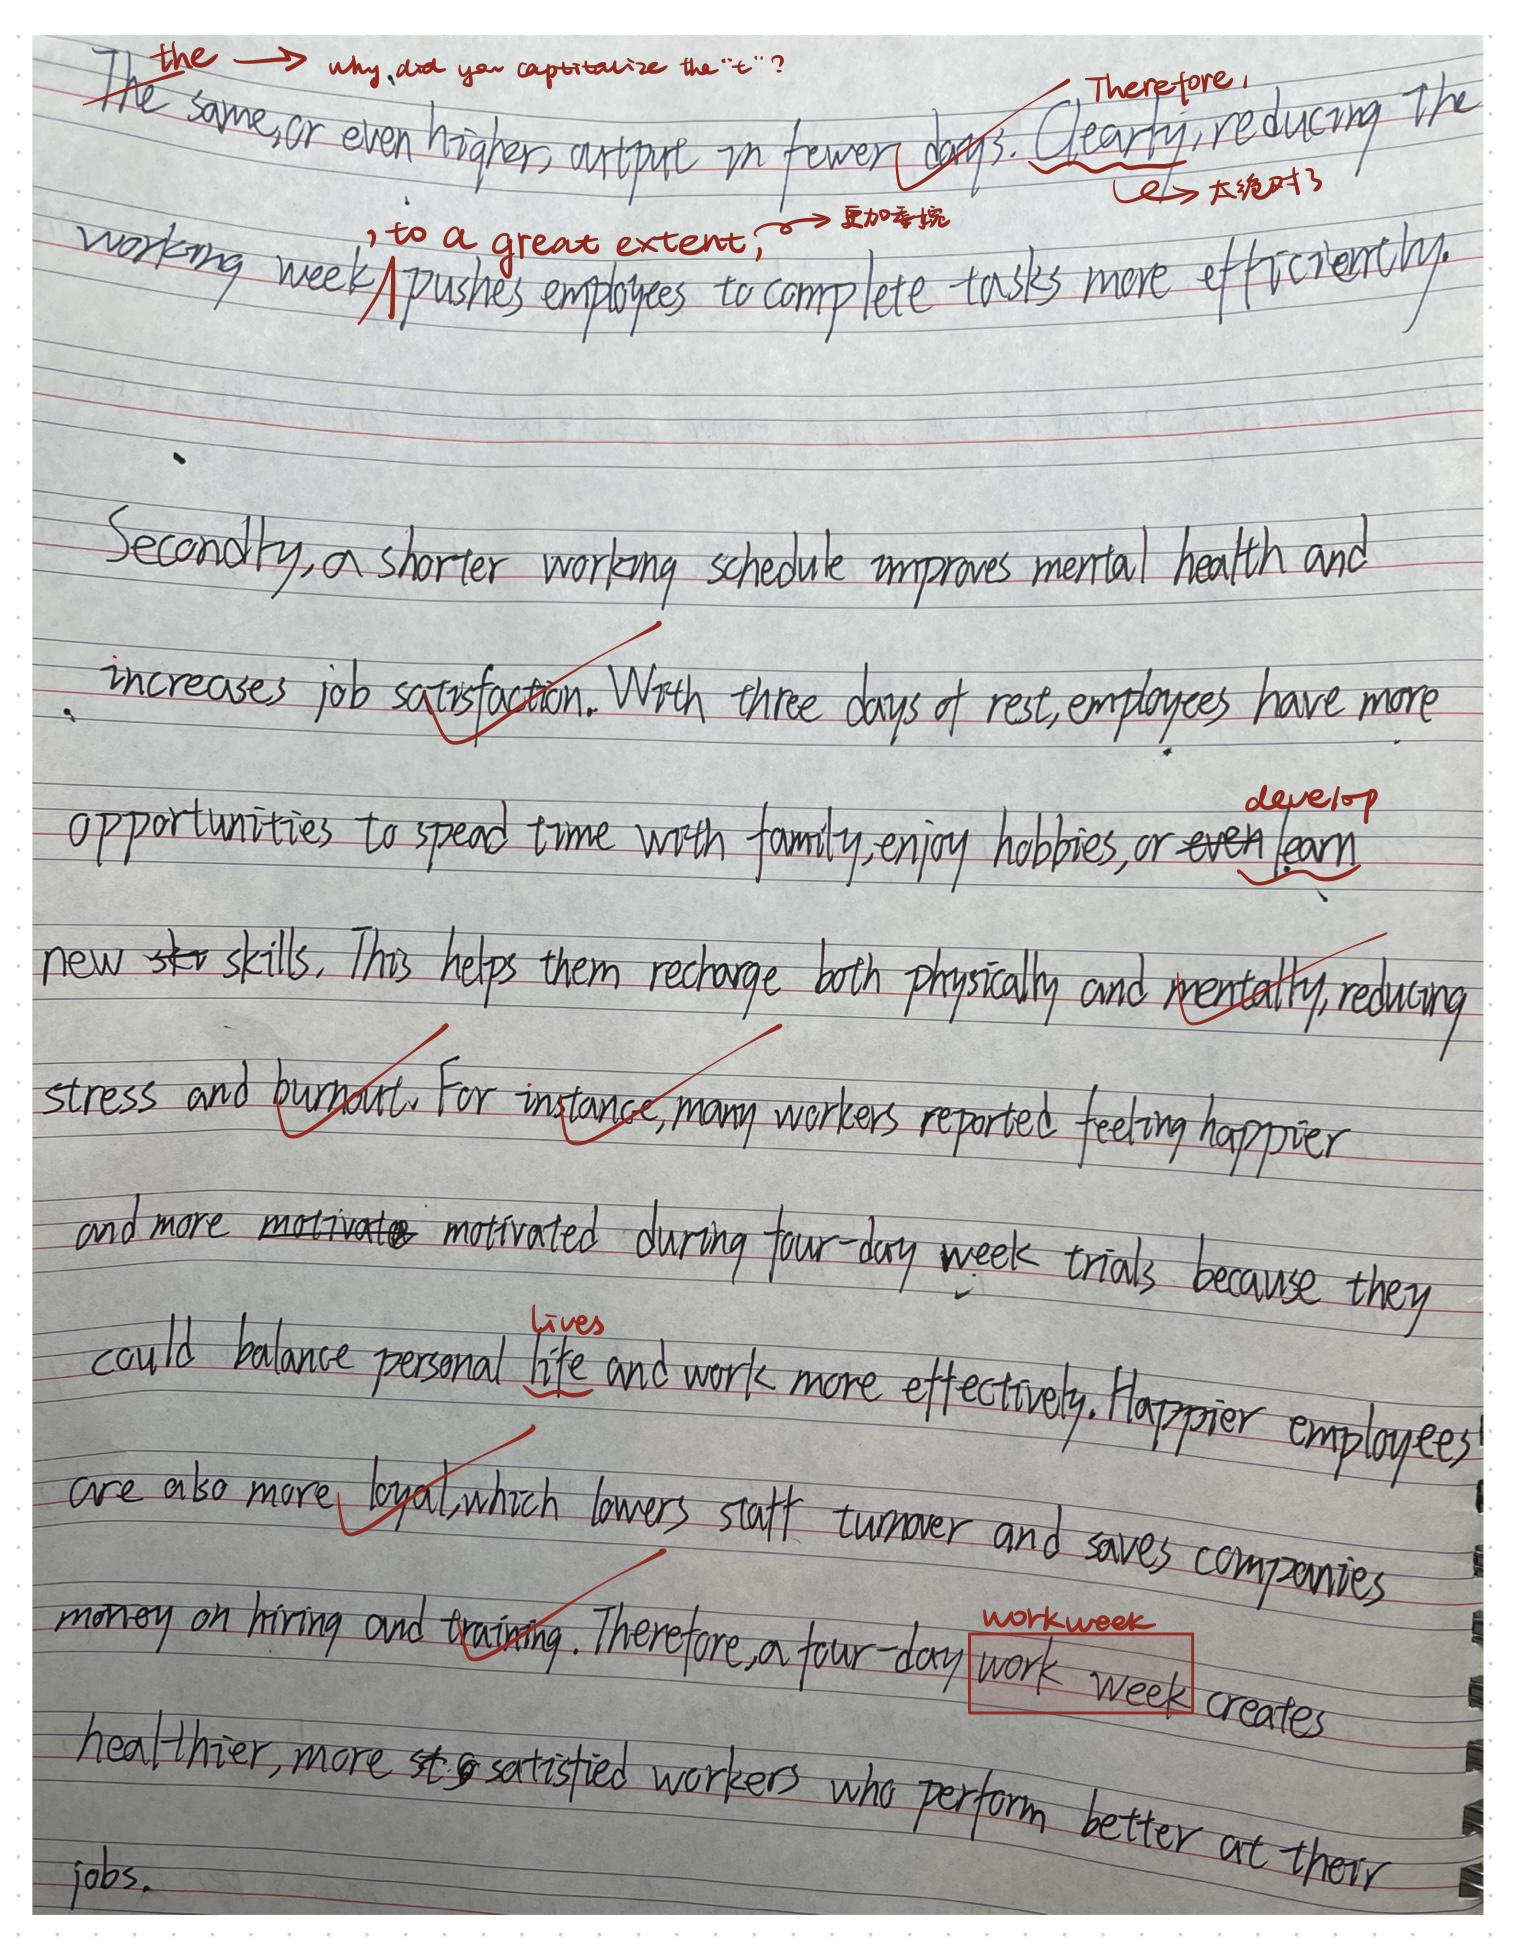 the → why did you captitalize the "t"?
Therefore,
The same, or even higher, output in fewer days. Clearly, reducing the
太绝对了
, to a great extent, → 更加委婉
working week pushes employees to complete tasks more efficiently.
Secondly, a shorter working schedule improves mental health and
increases job satisfaction. With three days of rest, employees have more
develop
opportunities to spead time with family, enjoy hobbies, or even learn
new skills. This helps them recharge both physically and mentally, reducing
stress and burnout. For instance, many workers reported feeling happier
and more motivate motivated during four-day week trials because they
lives
could balance personal life and work more effectively. Happier employees
are also more loyal, which lowers staff turnover and saves companies
money on hiring and training. Therefore, a four-day work week creates
workweek
healthier, more satisfied workers who perform better at their
jobs.